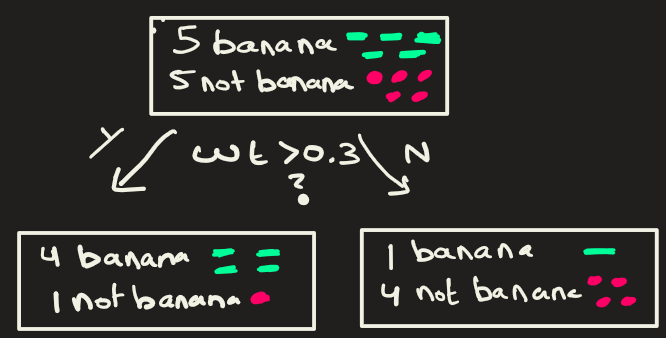 5 banana
5 not banana
Y
wt >0.3
?
N
4 banana
1 not banana
1 banana
4 not banana